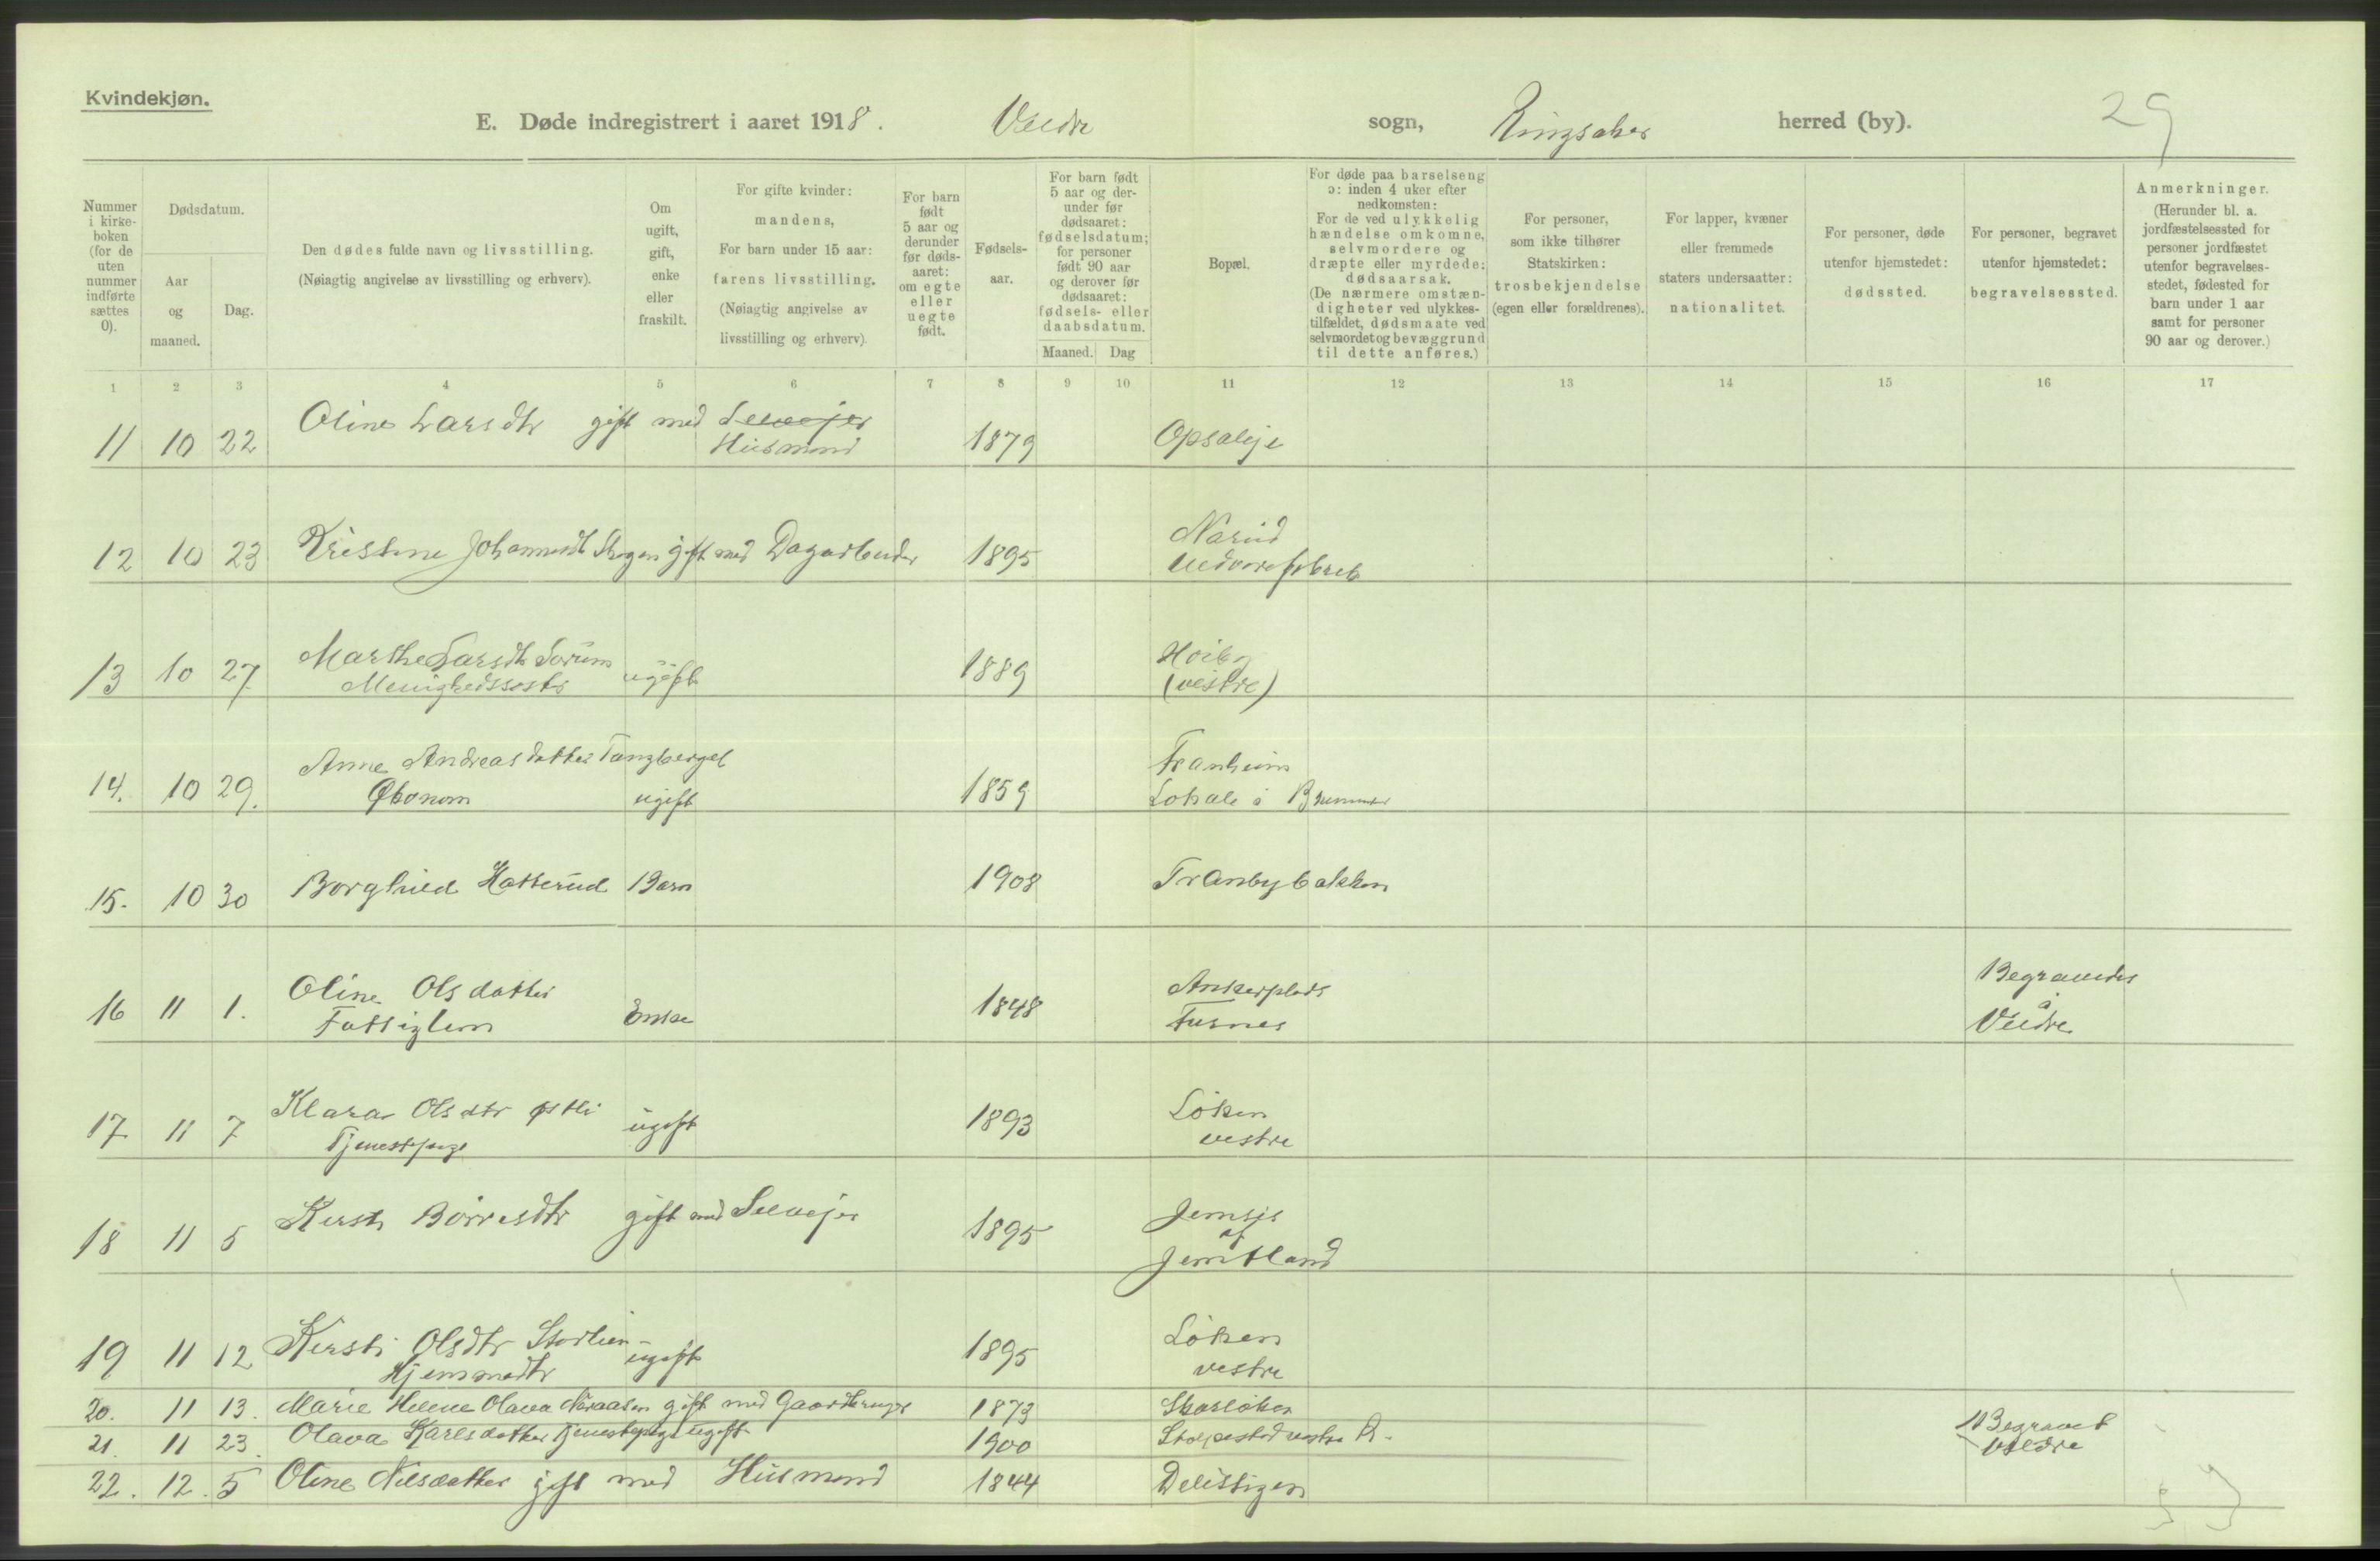 Kvindekjøn.
E. Døde indregistrert i aaret 1918. Veldre sogn, Ringsaker herred (by). 29
Nummer i kirkeboken (for de uten nummer indførte sættes 0).
Dødsdatum.
Aar og maaned.
Dag.
Den dødes fulde navn og livsstilling.
(Nøiagtig angivelse av livsstilling og erhverv).
Om ugift, gift, enke eller fraskilt.
For gifte kvinder:
mandens,
For barn under 15 aar:
farens livsstilling.
(Nøiagtig angivelse av livsstilling og erhverv).
For barn født 5 aar og derunder før dødsaaret: om egte eller uegte født.
Fødselsaar.
For barn født 5 aar og derunder før dødsaaret: fødselsdatum; for personer født 90 aar og derover før dødsaaret: fødsels- eller daabsdatum.
Maaned. Dag
Bopæl.
For døde paa barselseng ɔ: inden 4 uker efter nedkomsten:
For de ved ulykkelig hændelse omkomne, selvmordere og dræpte eller myrdede: dødsaarsak.
(De nærmere omstændigheter ved ulykkestilfældet, dødsmaate ved selvmordet og bevæggrund til dette anføres.)
For personer, som ikke tilhører Statskirken: trosbekjendelse (egen eller forældrenes).
For lapper, kvæner eller fremmede staters undersaatter: nationalitet.
For personer, døde utenfor hjemstedet: dødssted.
For personer, begravet utenfor hjemstedet: begravelsessted.
Anmerkninger.
(Herunder bl. a. jordfæstelsessted for personer jordfæstet utenfor begravelsesstedet, fødested for barn under 1 aar samt for personer 90 aar og derover.)
1 2 3 4 5 6 7 8 9 10 11 12 13 14 15 16 17
11 10 22 Oline Larsdtr gift med Selvejer 1879 Opsaleje
Husmand
12 10 23 Kristine Johannesdt Skogen gift med Dagarbeider 1895 Narud
Uldvarefabrik
13 10 27 Marthe Larsdtr Sorum ugift 1889 Hoiby
Menighedssoster (vestre)
14. 10 29. Anne Andreasdatter Tangberget Franheim
Økonom ugift 1859 Lokale i Brummer
15. 10 30 Borghild Hatterud Barn 1908 Tranbybakken
16 11 1. Oline Olsdatter Enke 1848 Ankerplads Begravedes
Fattiglem Furnes i Veldre
17 11 7 Klara Olsdtr østli ugift 1893 Löken
Tjenestpige vestre
18 11 5 Kersti Börresdtr gift med Selvejer 1895
af
Jemtland
19 11 12 Kirsti Olsdtr Storlien ugift 1895 Löken
vestre
20. 11 13. Marie Helene Olava Naraasen gift med Gaardbruger 1873 Skarlöken
21. 11 23. Olava Karlsdatter Tjenestepige ugift 1900 Stolpestad vestre R. Begravet
Veldre
22. 12. 5 Oline Nilsdatter gift med Husmand 1844 Delistigen